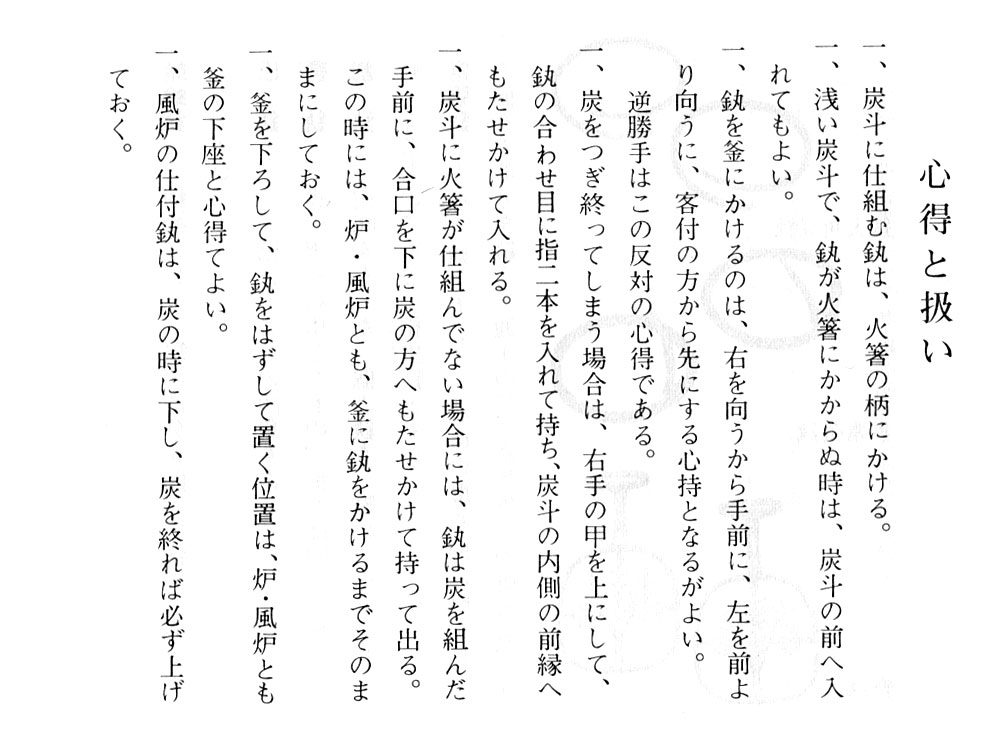 心得と扱い
一、炭斗に仕組む釻は、火箸の柄にかける。
一、浅い炭斗で、釻が火箸にかからぬ時は、炭斗の前へ入
れてもよい。
一、釻を釜にかけるのは、右を向うから手前に、左を前よ
り向うに、客付の方から先にする心持となるがよい。
逆勝手はこの反対の心得である。
一、炭をつぎ終ってしまう場合は、右手の甲を上にして、
釻の合わせ目に指二本を入れて持ち、炭斗の内側の前縁へ
もたせかけて入れる。
一、炭斗に火箸が仕組んでない場合には、釻は炭を組んだ
手前に、合口を下に炭の方へもたせかけて持って出る。
この時には、炉・風炉とも、釜に釻をかけるまでそのま
まにしておく。
一、釜を下ろして、釻をはずして置く位置は、炉・風炉とも
釜の下座と心得てよい。
一、風炉の仕付釻は、炭の時に下し、炭を終れば必ず上げ
ておく。